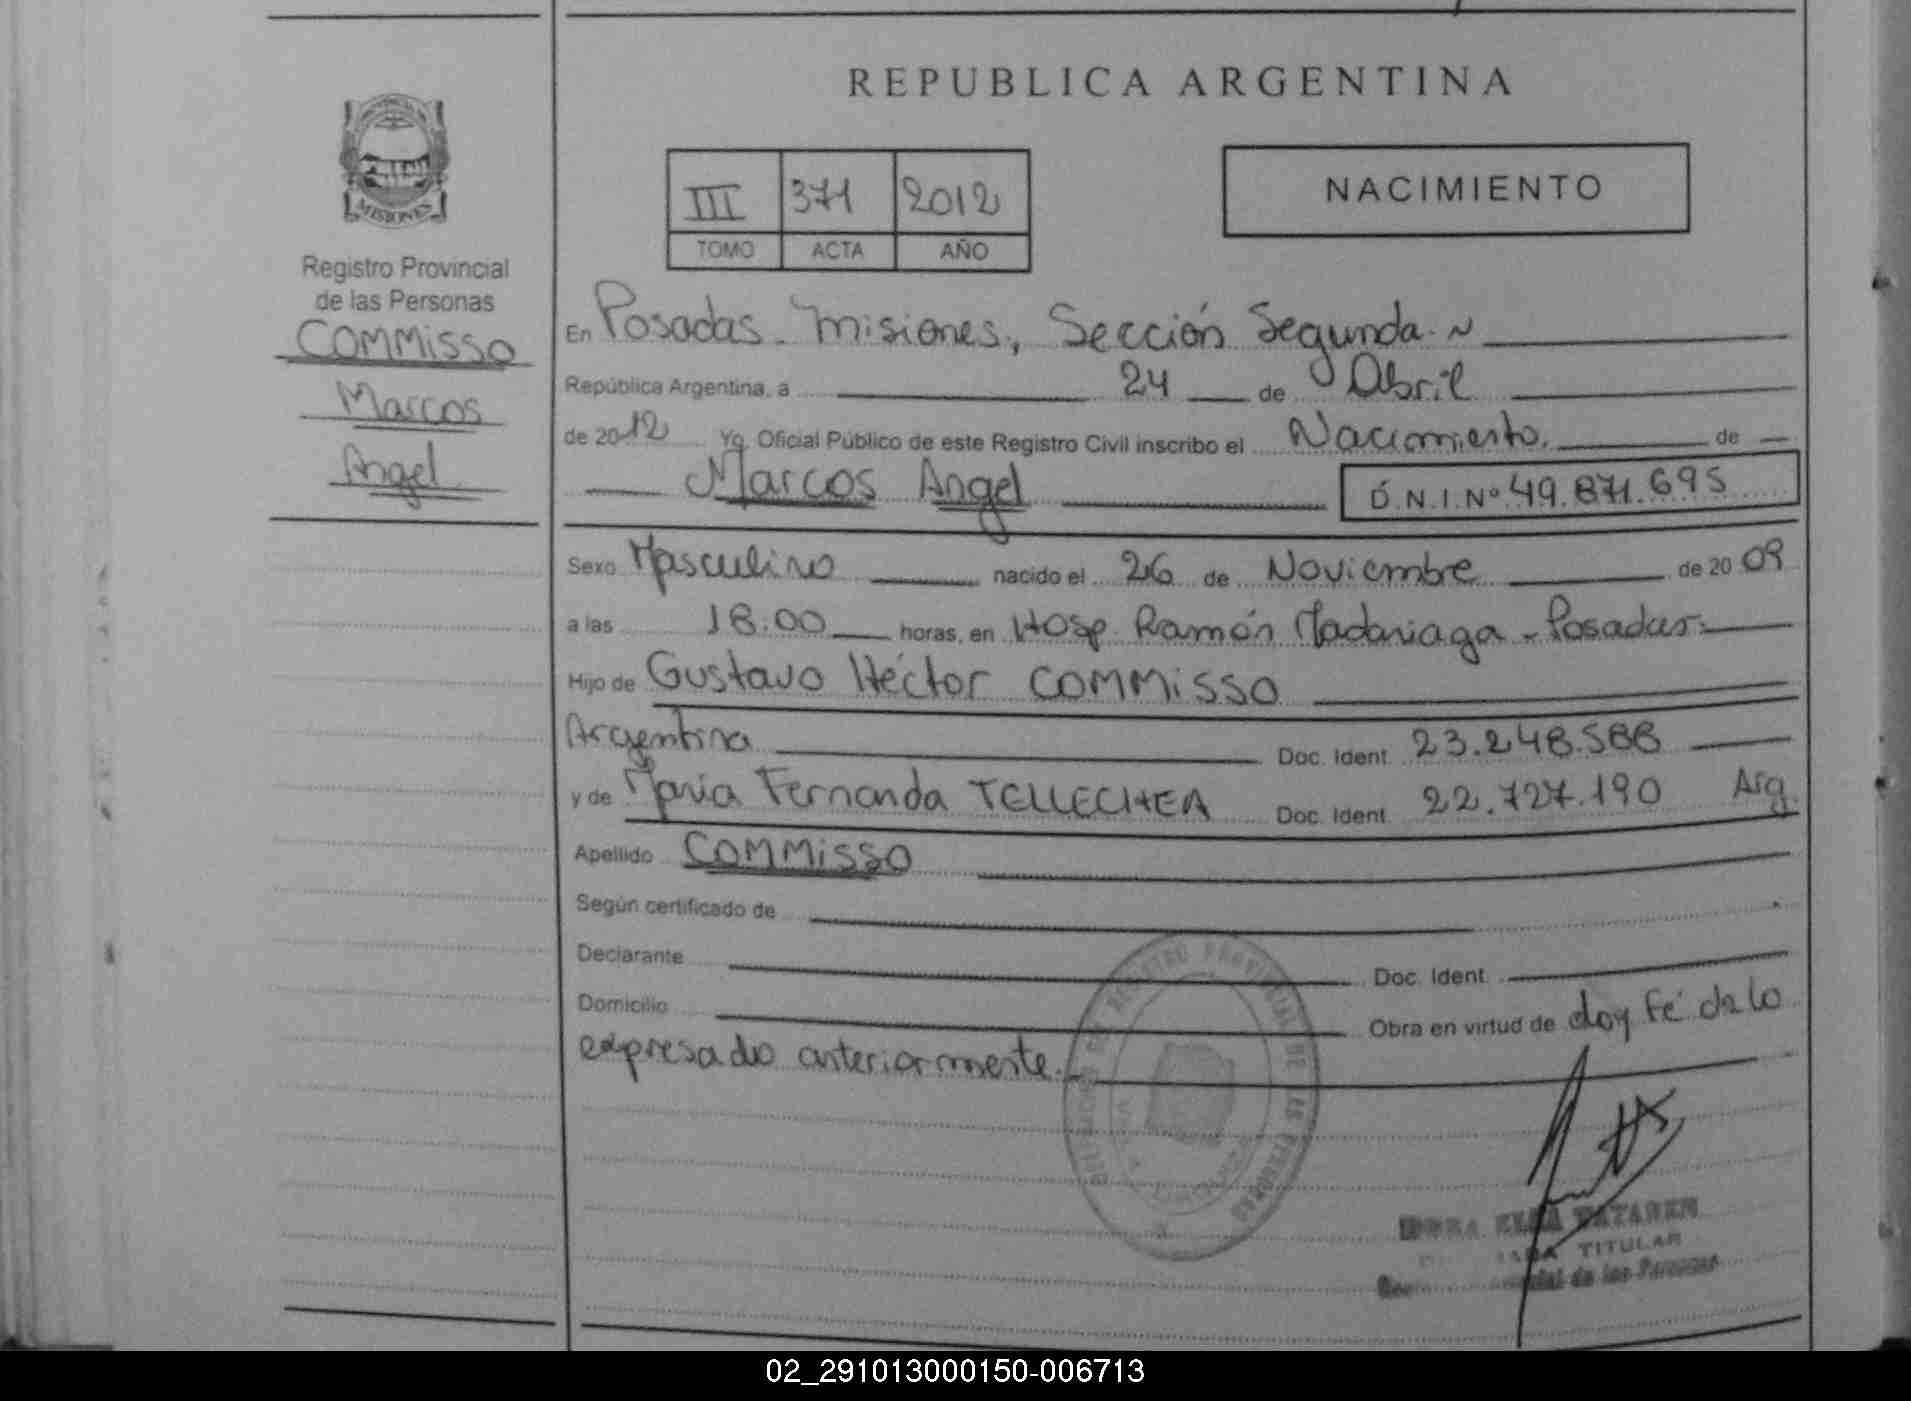 REPUBLICA ARGENTINA
PROVINCIA DE
MISIONES
Registro Provincial
de las Personas
COMMISSO
Marcos
Angel
III 371 2012
TOMO ACTA AÑO
NACIMIENTO
En Posadas - Misiones, Sección Segunda. ~
República Argentina, a 24 de Abril
de 2012 Yo, Oficial Público de este Registro Civil inscribo el Nacimiento. de
Marcos Angel D.N.I.Nº 49.871.695
Sexo Masculino nacido el 26 de Noviembre de 2009
a las 18:00 horas, en Hosp. Ramón Madariaga - Posadas.
Hijo de Gustavo Héctor COMMISSO
Argentina Doc. Ident. 23.248.588
y de María Fernanda TELLECHEA Doc. Ident. 22.727.190 Arg.
Apellido COMMISSO
Según certificado de
Declarante Doc. Ident.
Domicilio Obra en virtud de doy fé de lo
expresado anteriormente.-
REGISTRO PROVINCIAL DE LAS PERSONAS
ELSA
TITULAR
de las Personas
02_291013000150-006713